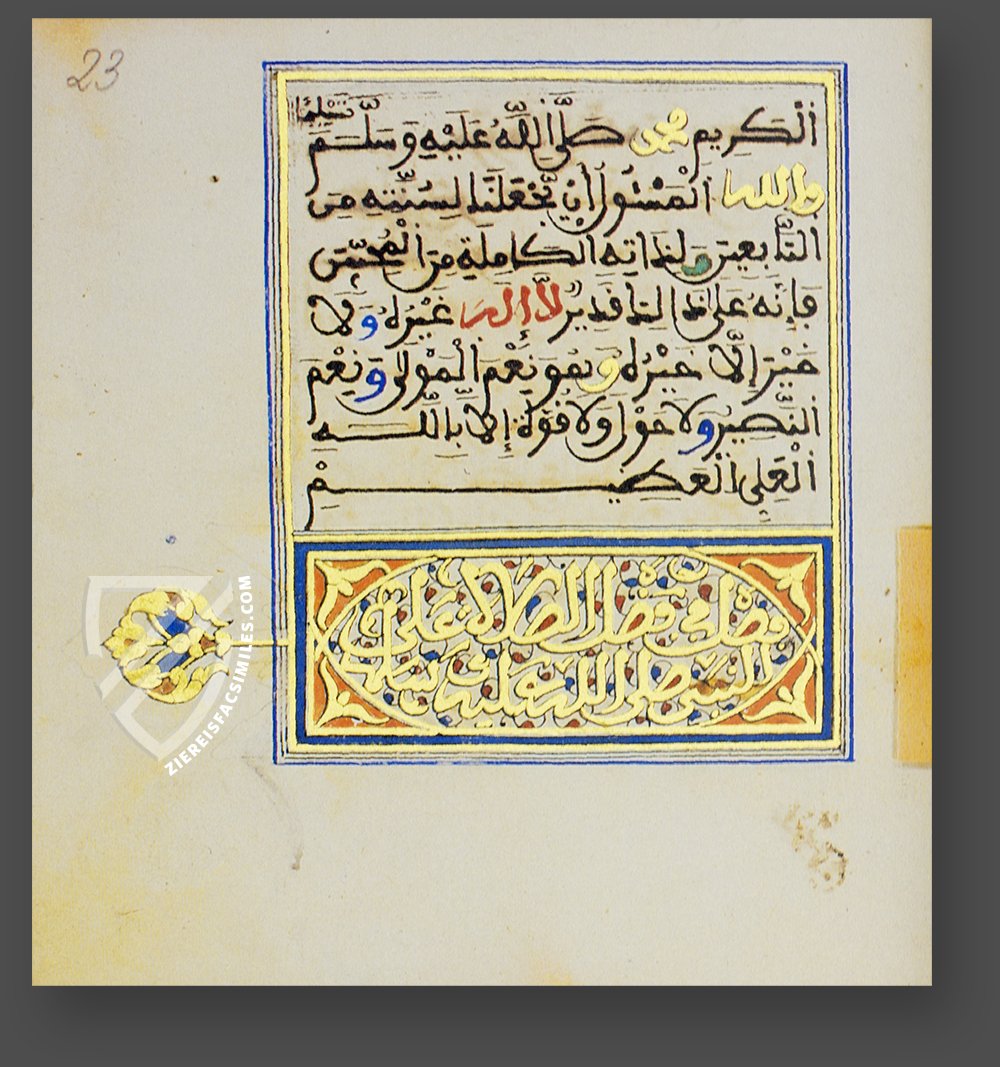 23
الكريم محمد صلَّى اللَّه عليه وسلَّم تسليما
والله المسئول أن يجعلنا لسنّته من
التّابعين ولذاته الكاملة من المحبّين
فإنّه على ذلك قدير لا إله غيره ولا
خير إلّا خيره وهو نعم المولى ونعم
النّصير ولا حول ولا قوّة إلا باللّه
العلي العظيم
فصل في فضل الصلاة على
النبي صلى الله عليه وسلم
ZIEREISFACSIMILES.COM